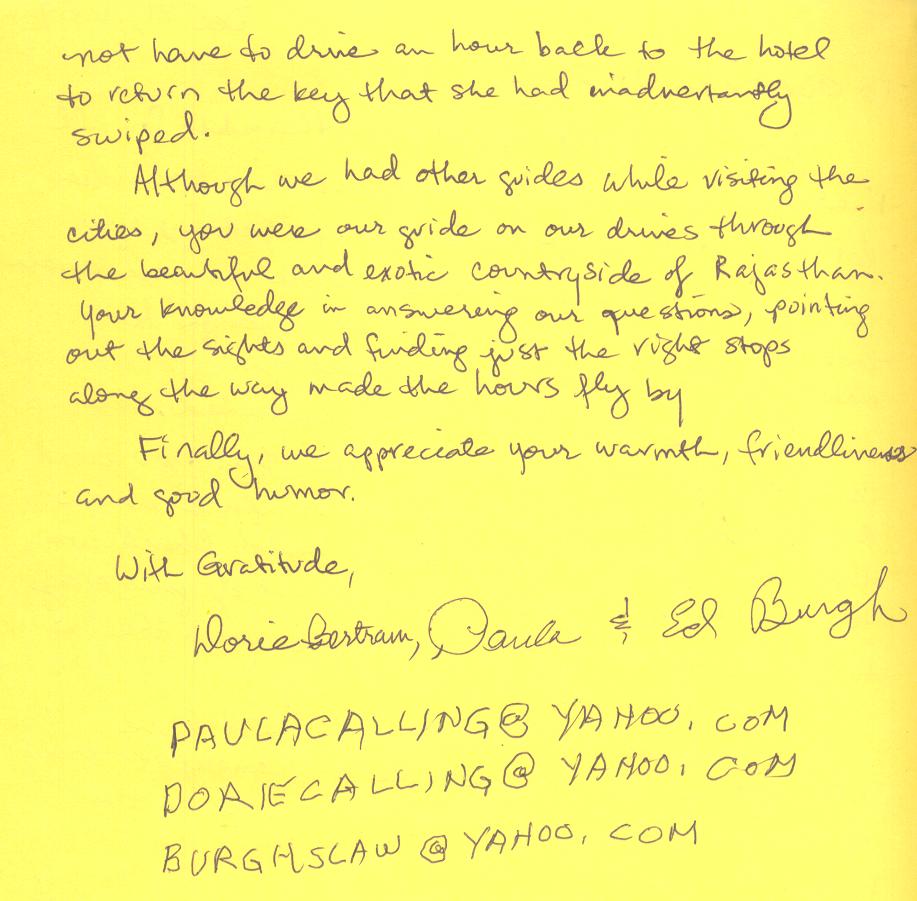 not have to drive an hour back to the hotel
to return the key that she had inadvertantly
swiped.
Although we had other guides while visiting the
cities, you were our guide on our drives through
the beautiful and exotic countryside of Rajasthan.
Your knowledge in answering our questions, pointing
out the sights and finding just the right stops
along the way made the hours fly by
Finally, we appreciate your warmth, friendliness
and good humor.
With Gratitude,
Dorie Bertram, Paula & Ed Burgh
PAULACALLING@YAHOO.COM
DORIECALLING@YAHOO.COM
BURGHSLAW@YAHOO.COM